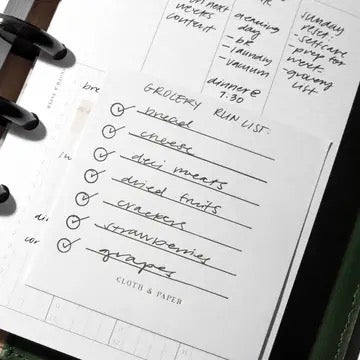 next
weeks
content
cleaning
day
- laundry
- vacuum
dinner @
7:30
sunday
reset.
- selfcare
- prep for
week.
- grocery
list
GROCERY RUN LIST.
bread
cheese
deli meats
dried fruits
crackers
strawberries
grapes
CLOTH & PAPER